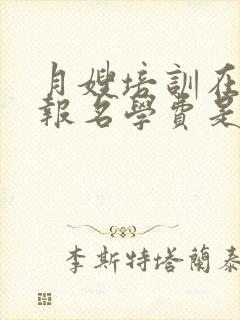 月嫂培訓在
報名學費是
李斯特塔蘭泰